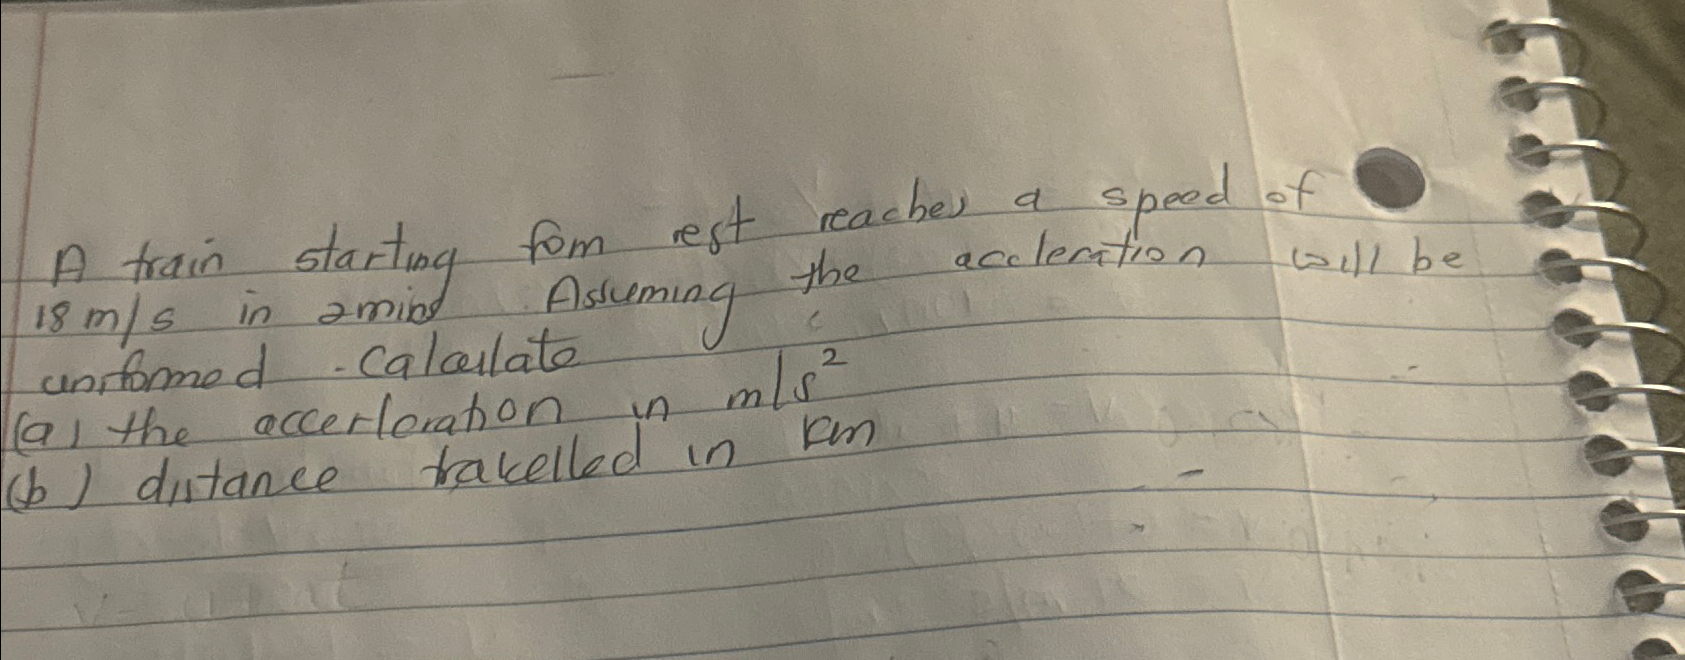 A train starting fom rest reaches a speed of
18 m/s in 2mins. Assuming the accleration will be
uniformed. Calculate
(a) the accerleration in m/s²
(b) distance travelled in km